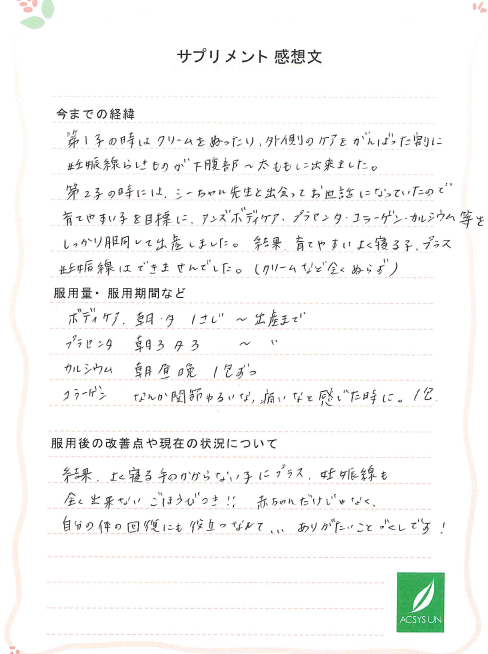 サプリメント 感想文
今までの経緯
第1子の時はクリームをぬったり、外側のケアをがんばった割に
妊娠線らしきものが下腹部～太ももに出来ました。
第2子の時には、シーちゃん先生と出会ってお世話になっていたので
育てやすい子を目標に、アンズボディケア・プラセンタ・コラーゲン・カルシウム等を
しっかり服用して出産しました。結果、育てやすいよく寝る子、プラス
妊娠線はできませんでした。(クリームなど全くぬらず)
服用量・服用期間など
ボディケア、朝・夕 1さじ ～出産まで
プラセンタ 朝3 夕3 ～ 〃
カルシウム 朝昼晩 1包ずつ
コラーゲン なんか関節ゆるいな,痛いなと感じた時に。1包.
服用後の改善点や現在の状況について
結果、よく寝る手のかからない子にプラス、妊娠線も
全く出来ない ごほうびつき!! 赤ちゃんだけじゃなく、
自分の体の回復にも役立つなんて... ありがたいことづくしです!
ACSYS UN